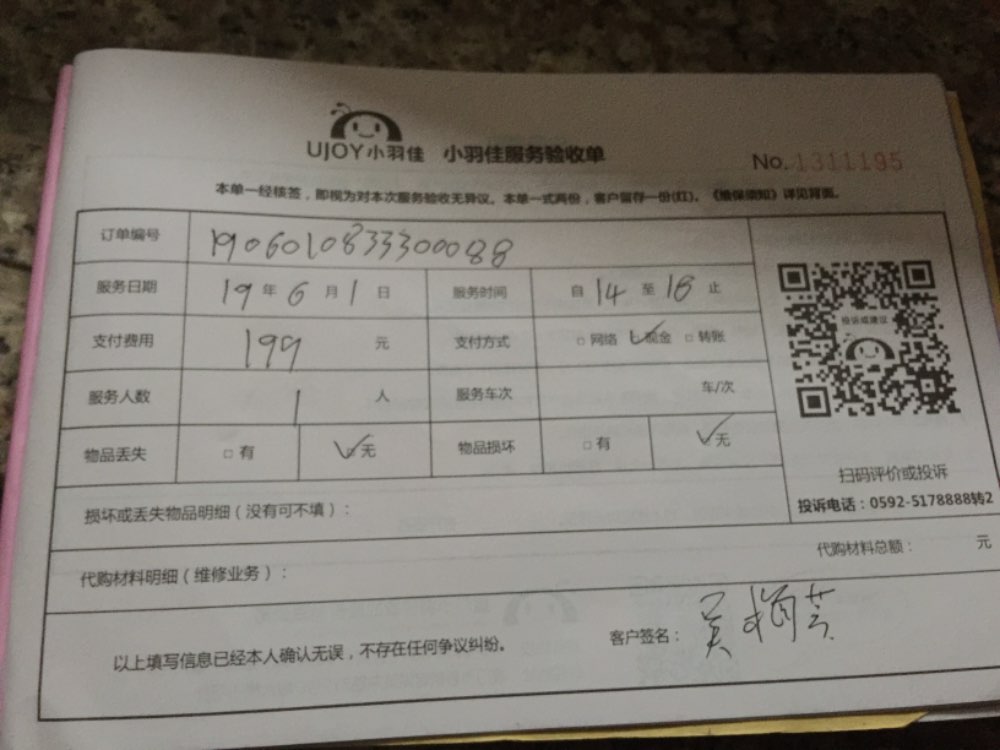 UJOY小羽佳 小羽佳服务验收单 No.1311195
本单一经核签，即视为对本次服务验收无异议。本单一式两份，客户留存一份(红)。《维保须知》详见背面。
订单编号 190601083330088
服务日期 19 年 6 月 1 日 服务时间 自 14 至 18 止
支付费用 199 元 支付方式 □网络 ☑现金 □转账
服务人数 1 人 服务车次 车/次
物品丢失 □有 ☑无 物品损坏 □有 ☑无
投诉或建议
扫码评价或投诉
投诉电话：0592-5178888转2
损坏或丢失物品明细（没有可不填）：
代购材料明细（维修业务）： 代购材料总额： 元
以上填写信息已经本人确认无误，不存在任何争议纠纷。 客户签名：吴梅芸